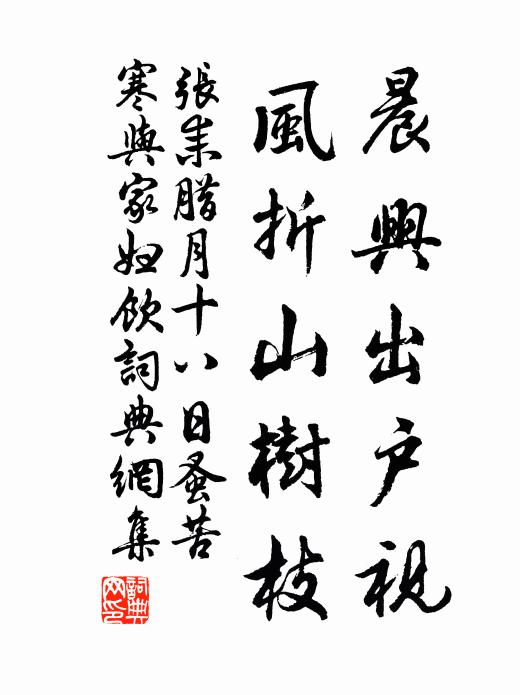 晨興出戶視
風折山樹枝
張耒腊月十八日蚤苦
寒與家婦飲詞典網集
詞典網印